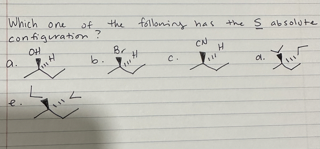 Which one of the following has the S absolute
configuration?
a. OH H b. Br H c. CN H d.
e.